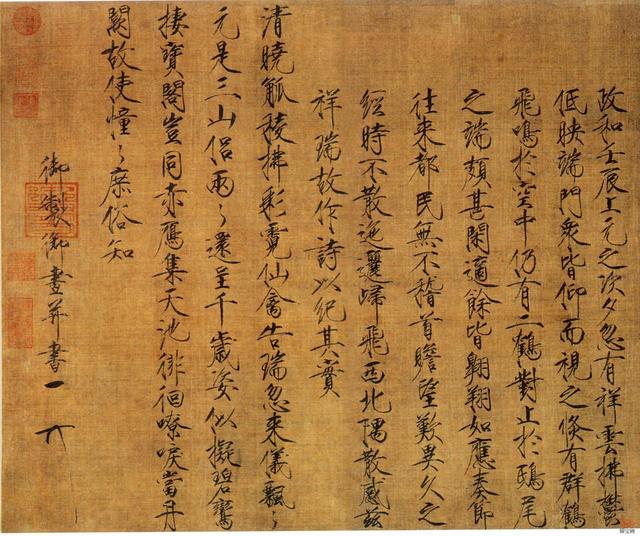 政和壬辰上元之次夕忽有祥雲拂鬱
低映端門衆皆仰而視之倐有群鶴
飛鳴於空中仍有二鶴對止於鴟尾
之端頗甚閑適餘皆翺翔如應奏節
往来都民無不稽首瞻望歎異久之
經時不散迤邐歸飛西北隅散感茲
祥瑞故作詩以紀其實
清曉觚稜拂彩霓仙禽告瑞忽来儀飄〻
元是三山侣兩〻還呈千歳姿似擬碧鸞
棲寶閣豈同赤鴈集天池徘徊嘹唳當丹
闕故使憧〻庶俗知
御製御畫并書